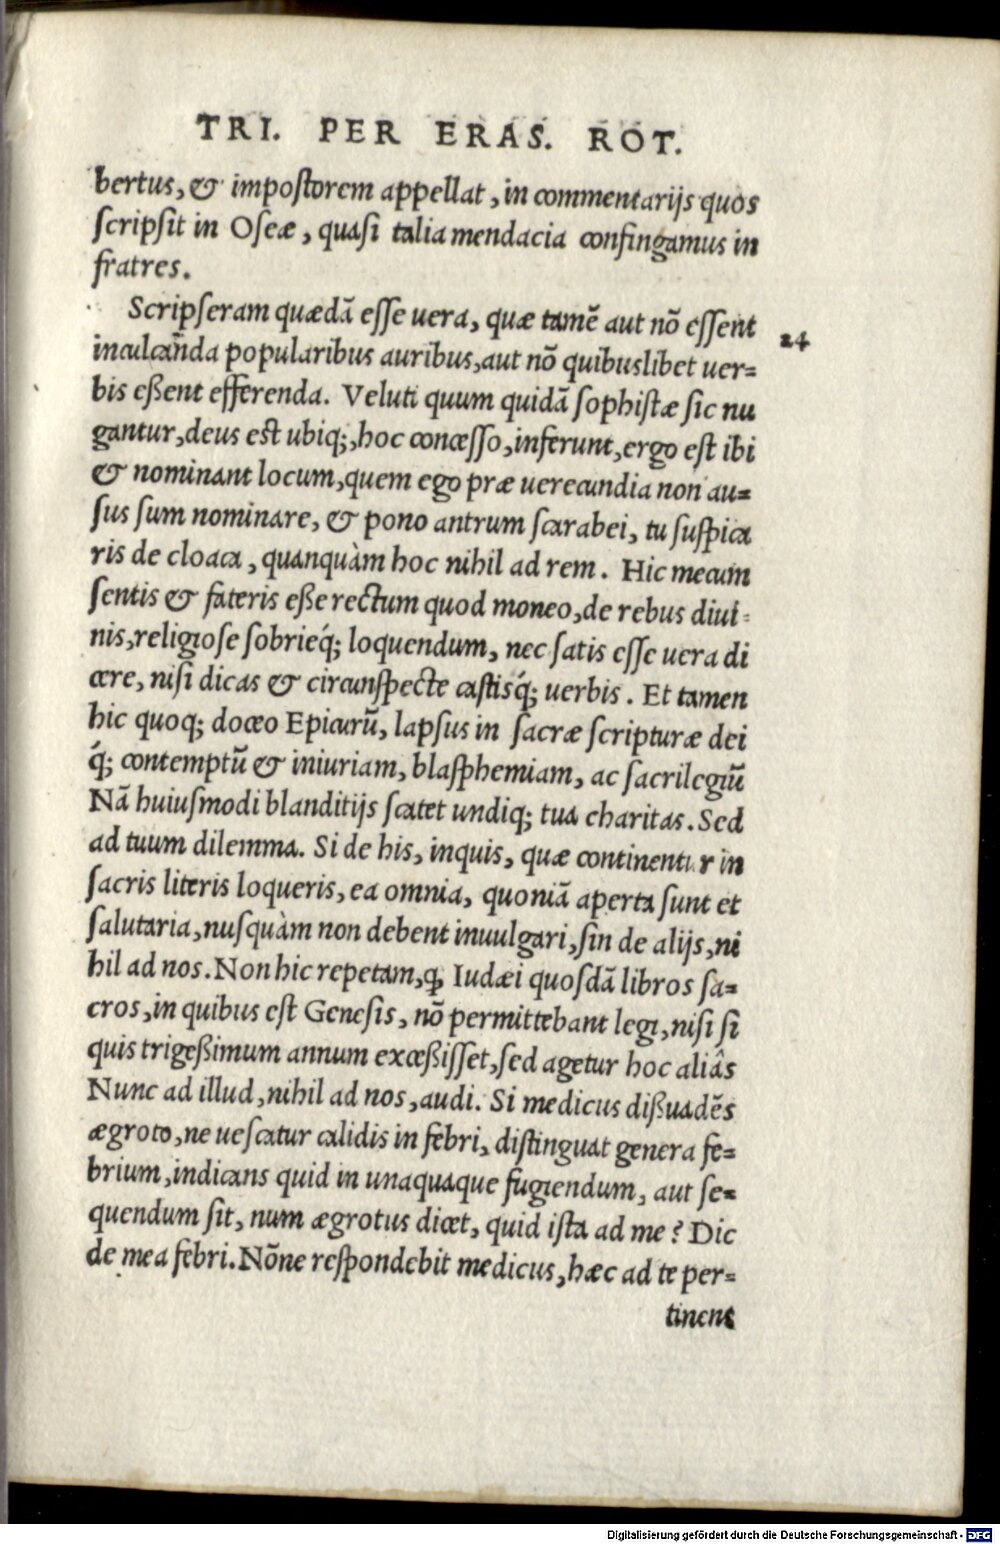 TRI. PER ERAS. ROT.
bertus, & impostorem appellat, in commentarijs quos
scripsit in Oseæ, quasi talia mendacia confingamus in
fratres.
Scripseram quædã esse uera, quæ tamẽ aut nõ essent
24
inculcãnda popularibus auribus, aut nõ quibuslibet uer=
bis eßent efferenda. Veluti quum quidã sophistæ sic nu
gantur, deus est ubiq;, hoc concesso, inferunt, ergo est ibi
& nominant locum, quem ego præ uerecundia non au=
sus sum nominare, & pono antrum scarabei, tu suspica
ris de cloaca, quanquàm hoc nihil ad rem. Hic mecum
sentis & fateris eße rectum quod moneo, de rebus diui=
nis, religiose sobrieq́; loquendum, nec satis esse uera di
cere, nisi dicas & circunspecte castisq́; uerbis. Et tamen
hic quoq; doceo Epicurũ, lapsus in sacræ scripturæ dei
q́; contemptũ & iniuriam, blasphemiam, ac sacrilegiũ
Nã huiusmodi blanditijs scatet undiq; tua charitas. Sed
ad tuum dilemma. Si de his, inquis, quæ continentur in
sacris literis loqueris, ea omnia, quoniã aperta sunt et
salutaria, nusquàm non debent inuulgari, sin de alijs, ni
hil ad nos. Non hic repetam, ꝙ Iudæi quosdã libros sa=
cros, in quibus est Genesis, nõ permittebant legi, nisi si
quis trigeßimum annum exceßisset, sed agetur hoc aliâs
Nunc ad illud, nihil ad nos, audi. Si medicus dißuadẽs
ægroto, ne uescatur calidis in febri, distinguat genera fe=
brium, indicans quid in unaquaque fugiendum, aut se=
quendum sit, num ægrotus dicet, quid ista ad me? Dic
de mea febri. Nõne respondebit medicus, hæc ad te per=
tinent
Digitalisierung gefördert durch die Deutsche Forschungsgemeinschaft - DFG